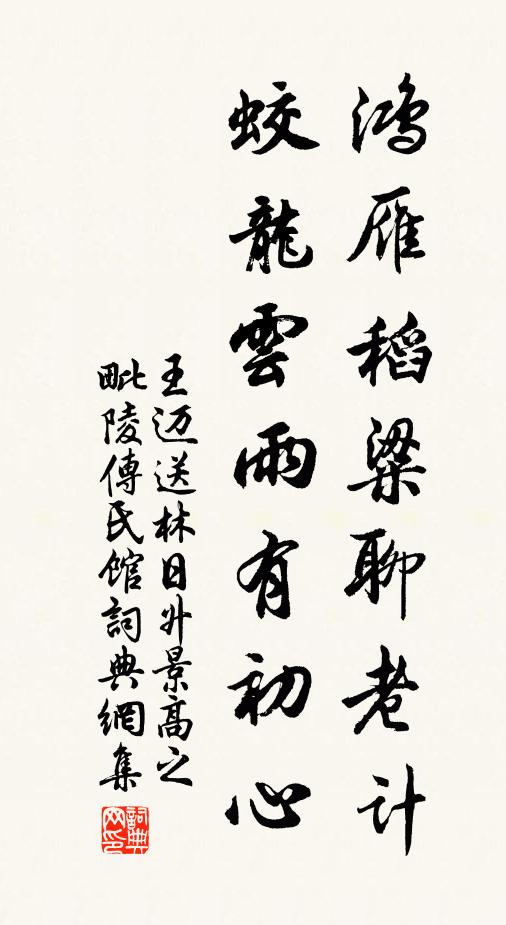 鴻雁稻粱聊老计
蛟龍雲雨有初心
王迈送林日升景高之
毗陵傅氏馆詞典網集
詞典網印